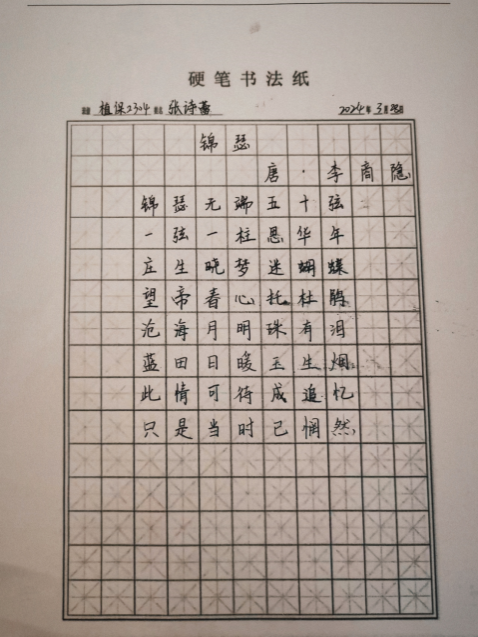 硬笔书法纸
植保2304 张诗 2024年3月
锦瑟
唐·李商隐
锦瑟无端五十弦
一弦一柱思华年
庄生晓梦迷蝴蝶
望帝春心托杜鹃
沧海月明珠有泪
蓝田日暖玉生烟
此情可待成追忆
只是当时已惘然